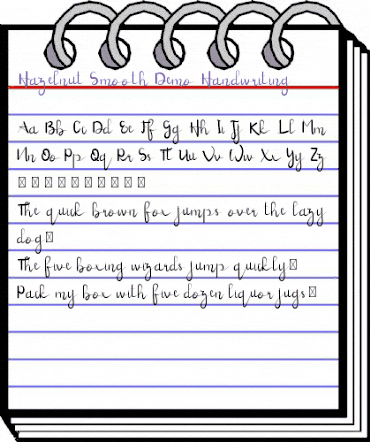 Hazelnut Smooth Demo Handwriting
Aa Bb Cc Dd Ee Ff Gg Hh Ii Jj Kk Ll Mm
Nn Oo Pp Qq Rr Ss Tt Uu Vv Ww Xx Yy Zz
□□□□□□□□□□
The quick brown fox jumps over the lazy
dog□
The five boxing wizards jump quickly□
Pack my box with five dozen liquor jugs□